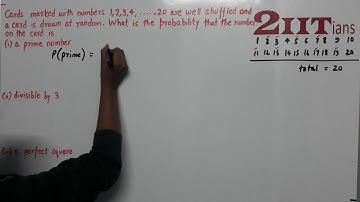 Cards marked with numbers 1,2,3,4, ....., 20 are well shuffled and
a card is drawn at random. What is the probability that the number
on the card is
(i) a prime number
P(prime) =
(ii) divisible by 3
(iii) a perfect square
2IITians
1 2 3 4 5 6 7 8 9 10
11 12 13 14 15 16 17 18 19 20
total = 20